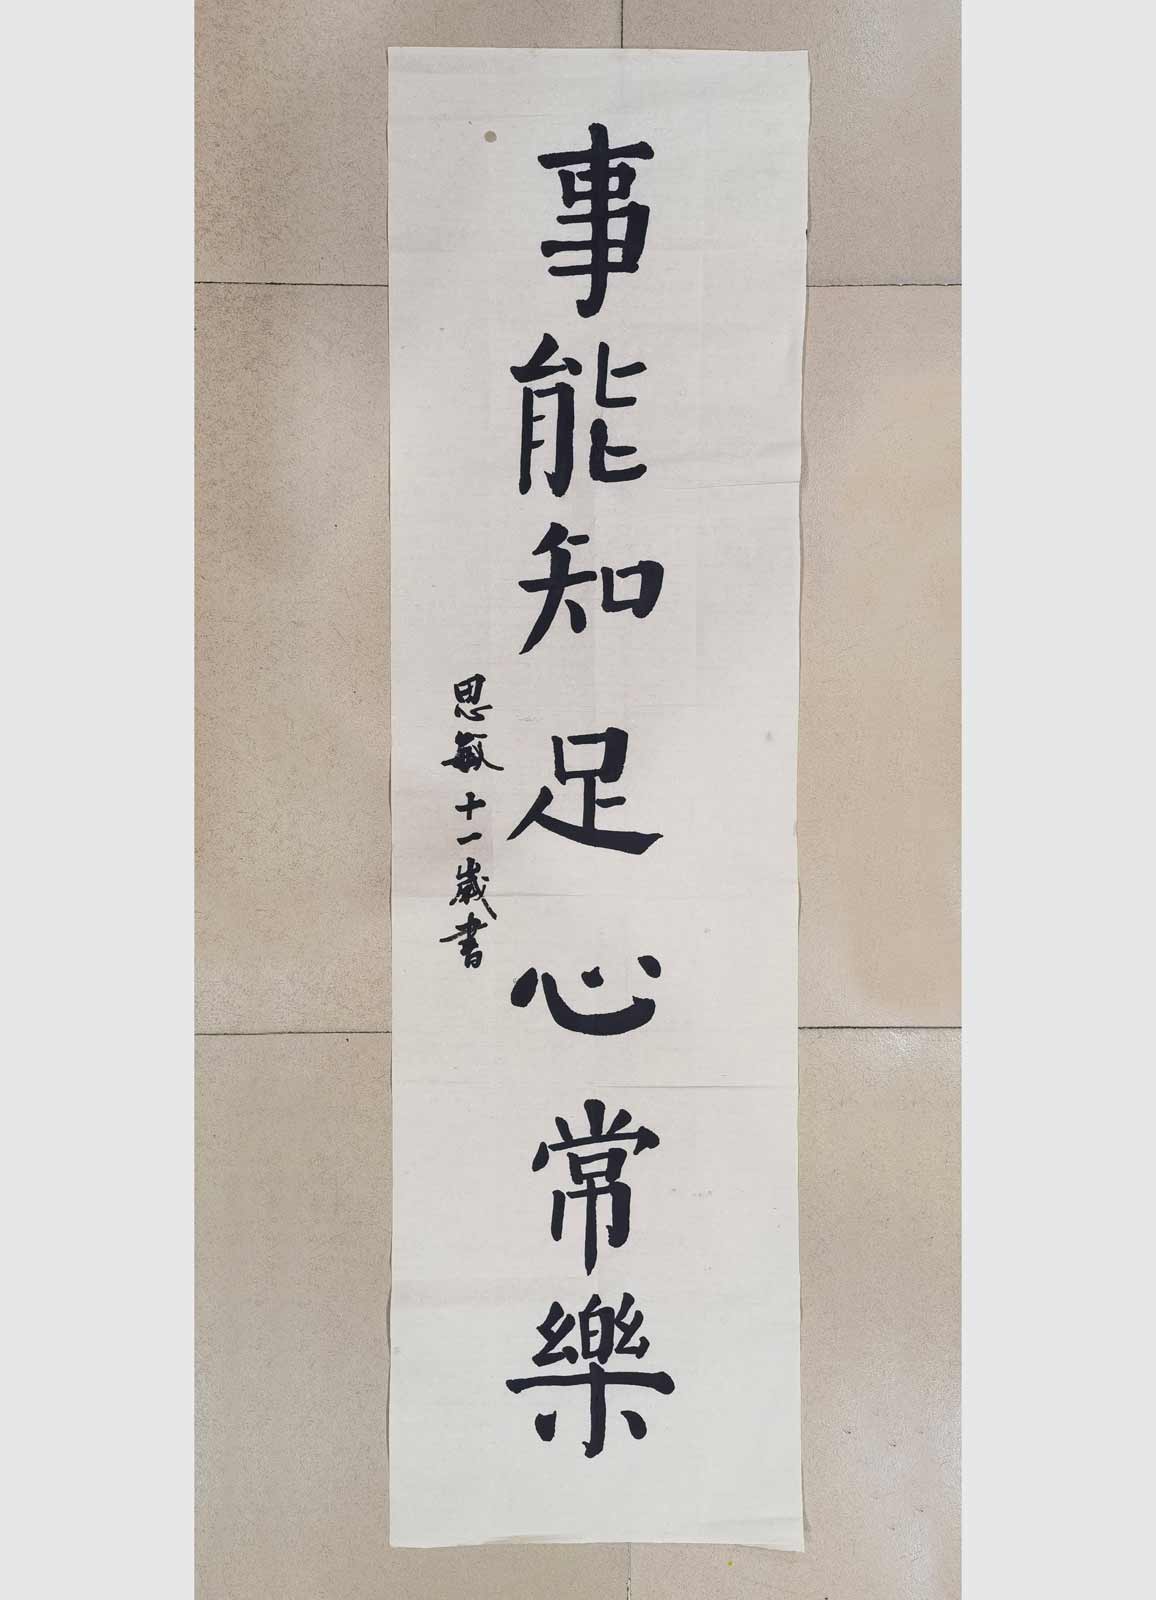 事能知足心常樂
思敏十一歲書